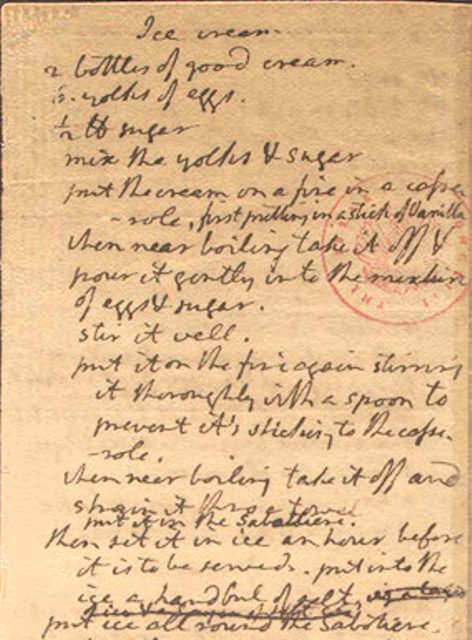 Ice cream.
2 bottles of good cream.
6. yolks of eggs.
1/2 ℔ sugar
mix the yolks & sugar
put the cream on a fire in a casse-
-role, first putting in a stick of Vanilla.
when near boiling take it off &
pour it gently into the mixture
of eggs & sugar.
stir it well.
put it on the fire again stirring
it thoroughly with a spoon to
prevent it's sticking to the casse-
-role.
when near boiling take it off and
strain it thro' a towel.
put it in the Sabottiere.
then set it in ice an hour before
it is to be served. put into the
ice a handful of salt.
put ice all round the Sabottiere